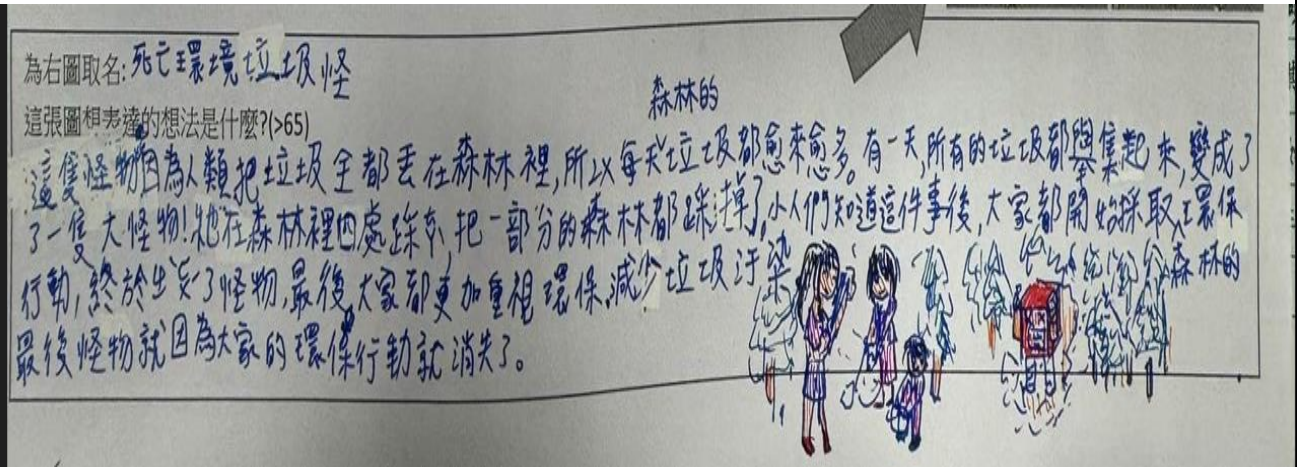 為右圖取名:死亡環境垃圾怪
這張圖想表達的想法是什麼?(>65)
森林的
這隻怪物因為人類把垃圾全都丟在森林裡,所以每天垃圾都愈來愈多。有一天,所有的垃圾都集起來,變成了
了一隻大怪物!牠在森林裡四處踩,把一部分的森林都踩掉了,小人們知道這件事後,大家都開始採取環保
行動,終於了怪物,最後大家都更加重視環保,減少垃圾汙染森林的
最後怪物就因為大家的環保行動就消失了。